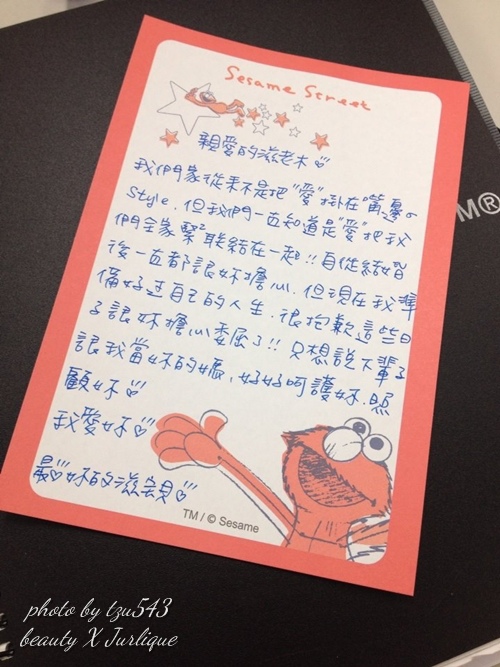 Sesame Street
親愛的滋老木
我們家從來不是把"愛"掛在嘴邊の
Style，但我們一直知道是"愛"把我
們全家緊緊聯結在一起!!自從結婚
後一直都讓妳擔心，但現在我準
備好過自己的人生，很抱歉這些日
子讓妳擔心委屈了!!只想說下輩子
讓我當妳的娘，好好呵護妳，照
顧妳
我愛妳
最 妳的滋寶貝
TM / © Sesame
M®
photo by tzu543
beauty X Jurlique